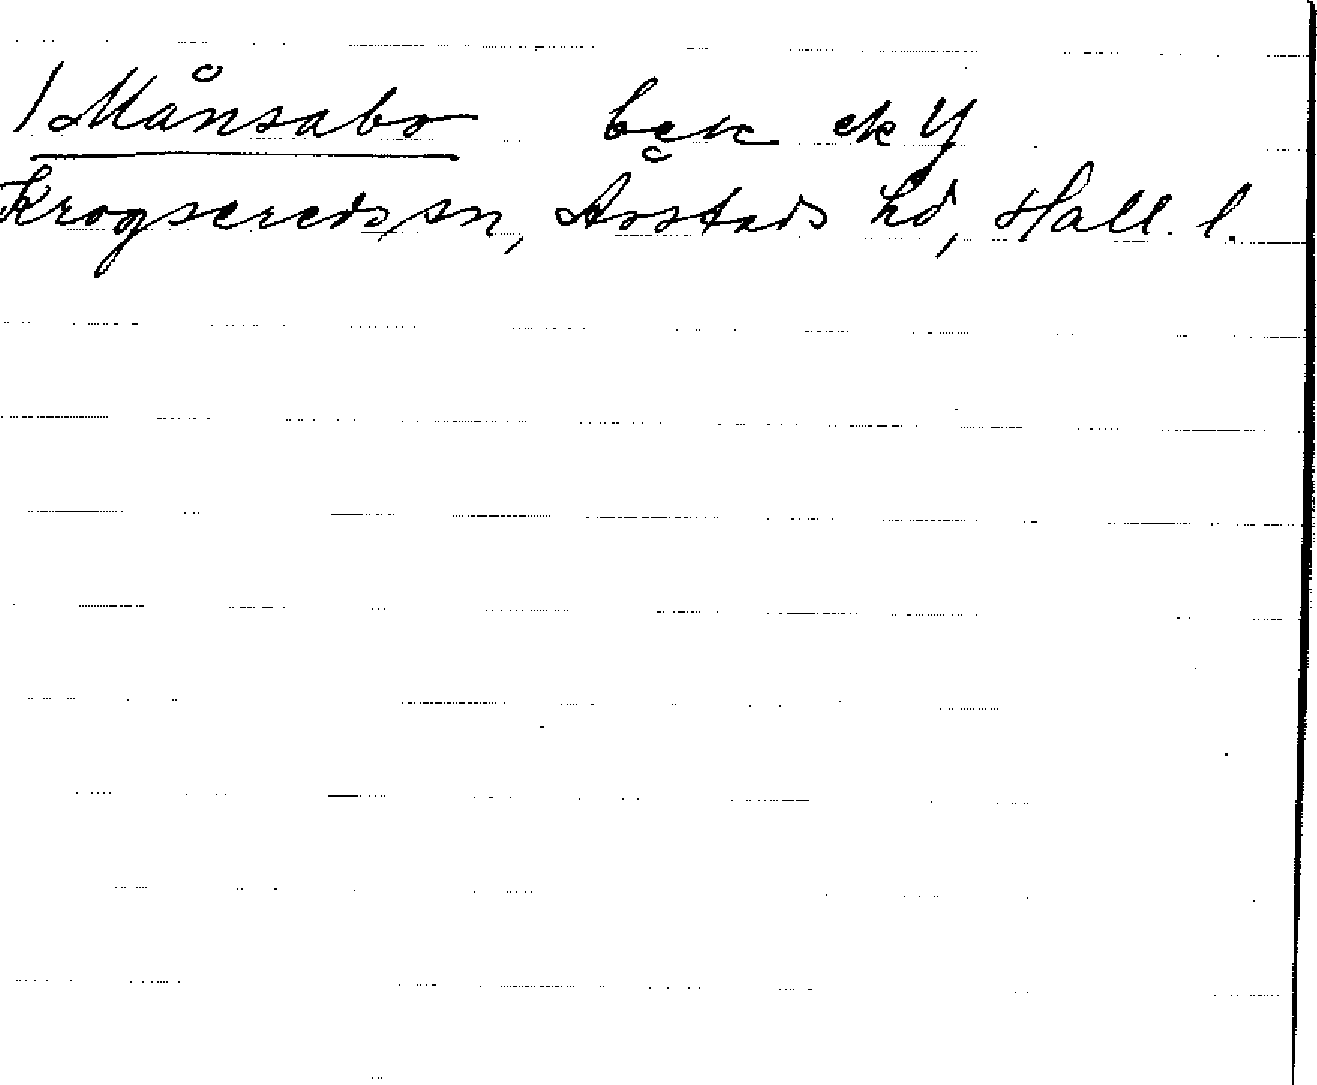 /Månsabo bek ek Y
Krogsereds sn, Årstads hd, Hall. l.